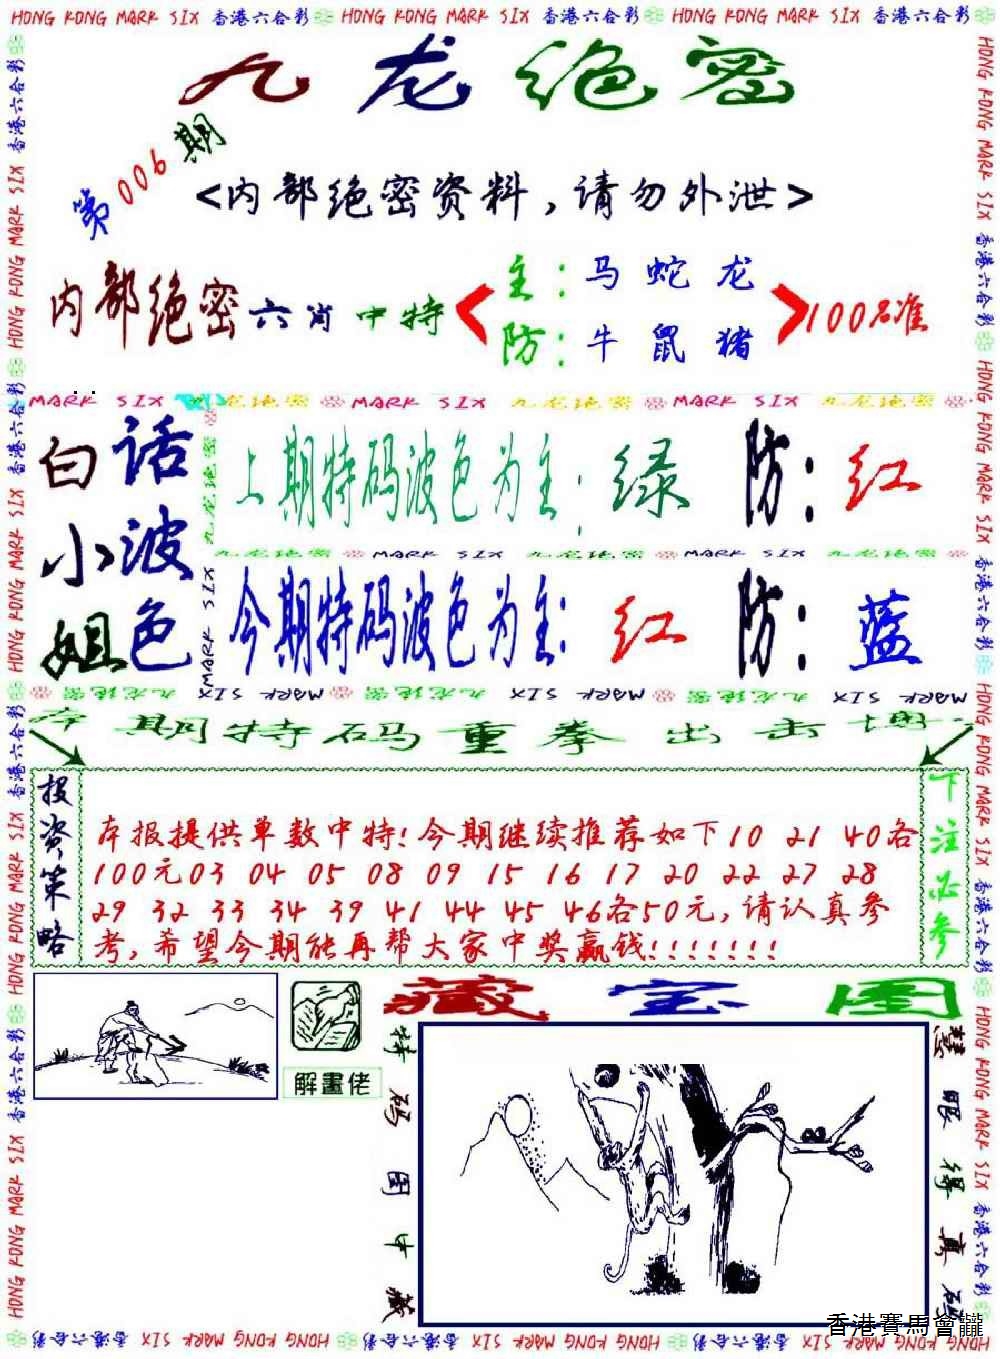 HONG KONG MARK SIX 香港六合彩 HONG KONG MARK SIX 香港六合彩 HONG KONG MARK SIX 香港六合彩
九龙绝密
第006期
<内部绝密资料，请勿外泄>
内部绝密六肖中特
主：马 蛇 龙
防：牛 鼠 猪
100名准
MARK SIX 九龙绝密 MARK SIX 九龙绝密 MARK SIX 九龙绝密
白小姐
话波色
上期特码波色为主：绿 防：红
九龙绝密 MARK SIX 九龙绝密 MARK SIX 九龙绝密
今期特码波色为主：红 防：蓝
九龙绝密 MARK SIX 九龙绝密 MARK SIX 九龙绝密 MARK SIX
本期特码重拳出击
投资策略
本报提供单数中特！今期继续推荐如下10 21 40各
100元03 04 05 08 09 15 16 17 20 22 27 28
29 32 33 34 39 41 44 45 46各50元，请认真参
考，希望今期能再帮大家中奖赢钱！！！！！！！
下注必参
解畫佬
藏宝图
特码图中藏
慧眼得真码
香港賽馬會
HONG KONG MARK SIX 香港六合彩 HONG KONG MARK SIX 香港六合彩 HONG KONG MARK SIX 香港六合彩